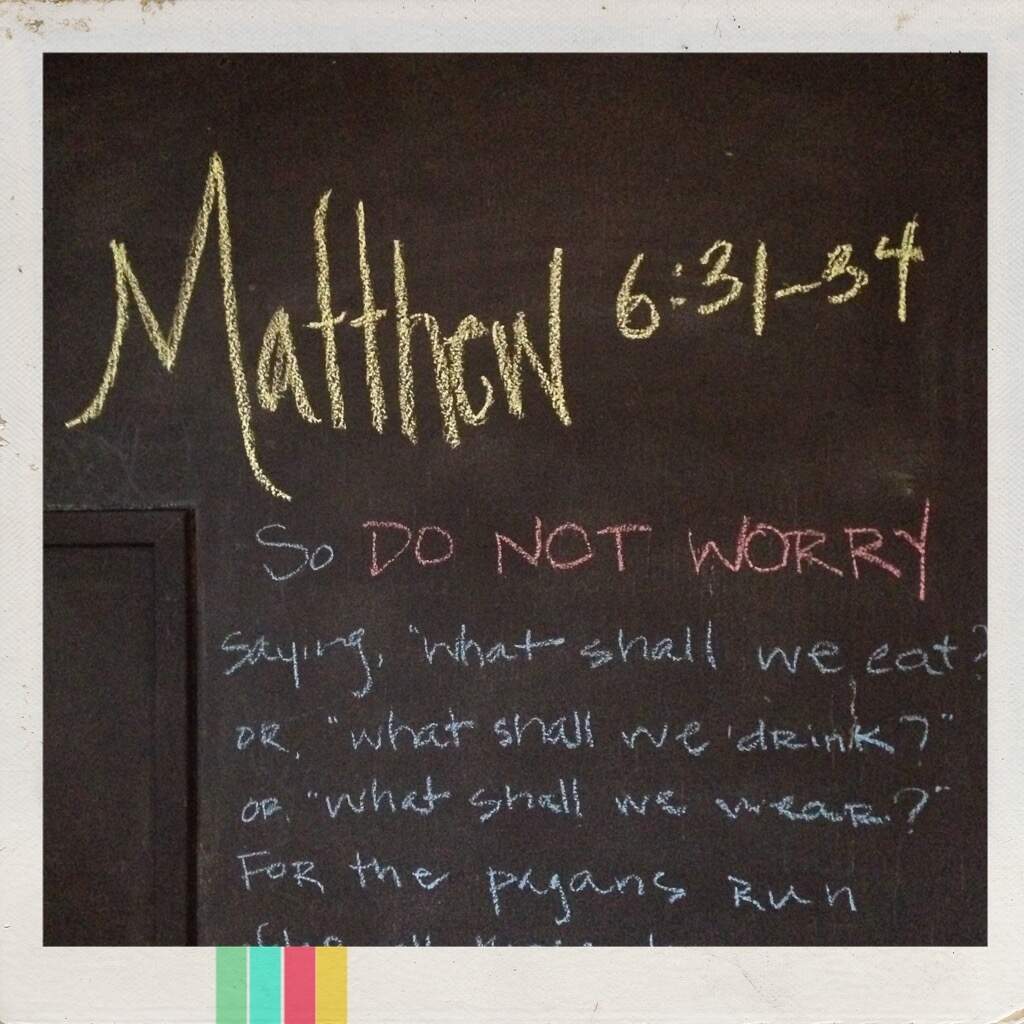 Matthew 6:31-34
So DO NOT WORRY
saying, "what shall we eat?
OR, "what shall we drink?"
OR "what shall we wear?"
FOR the pagans RUN